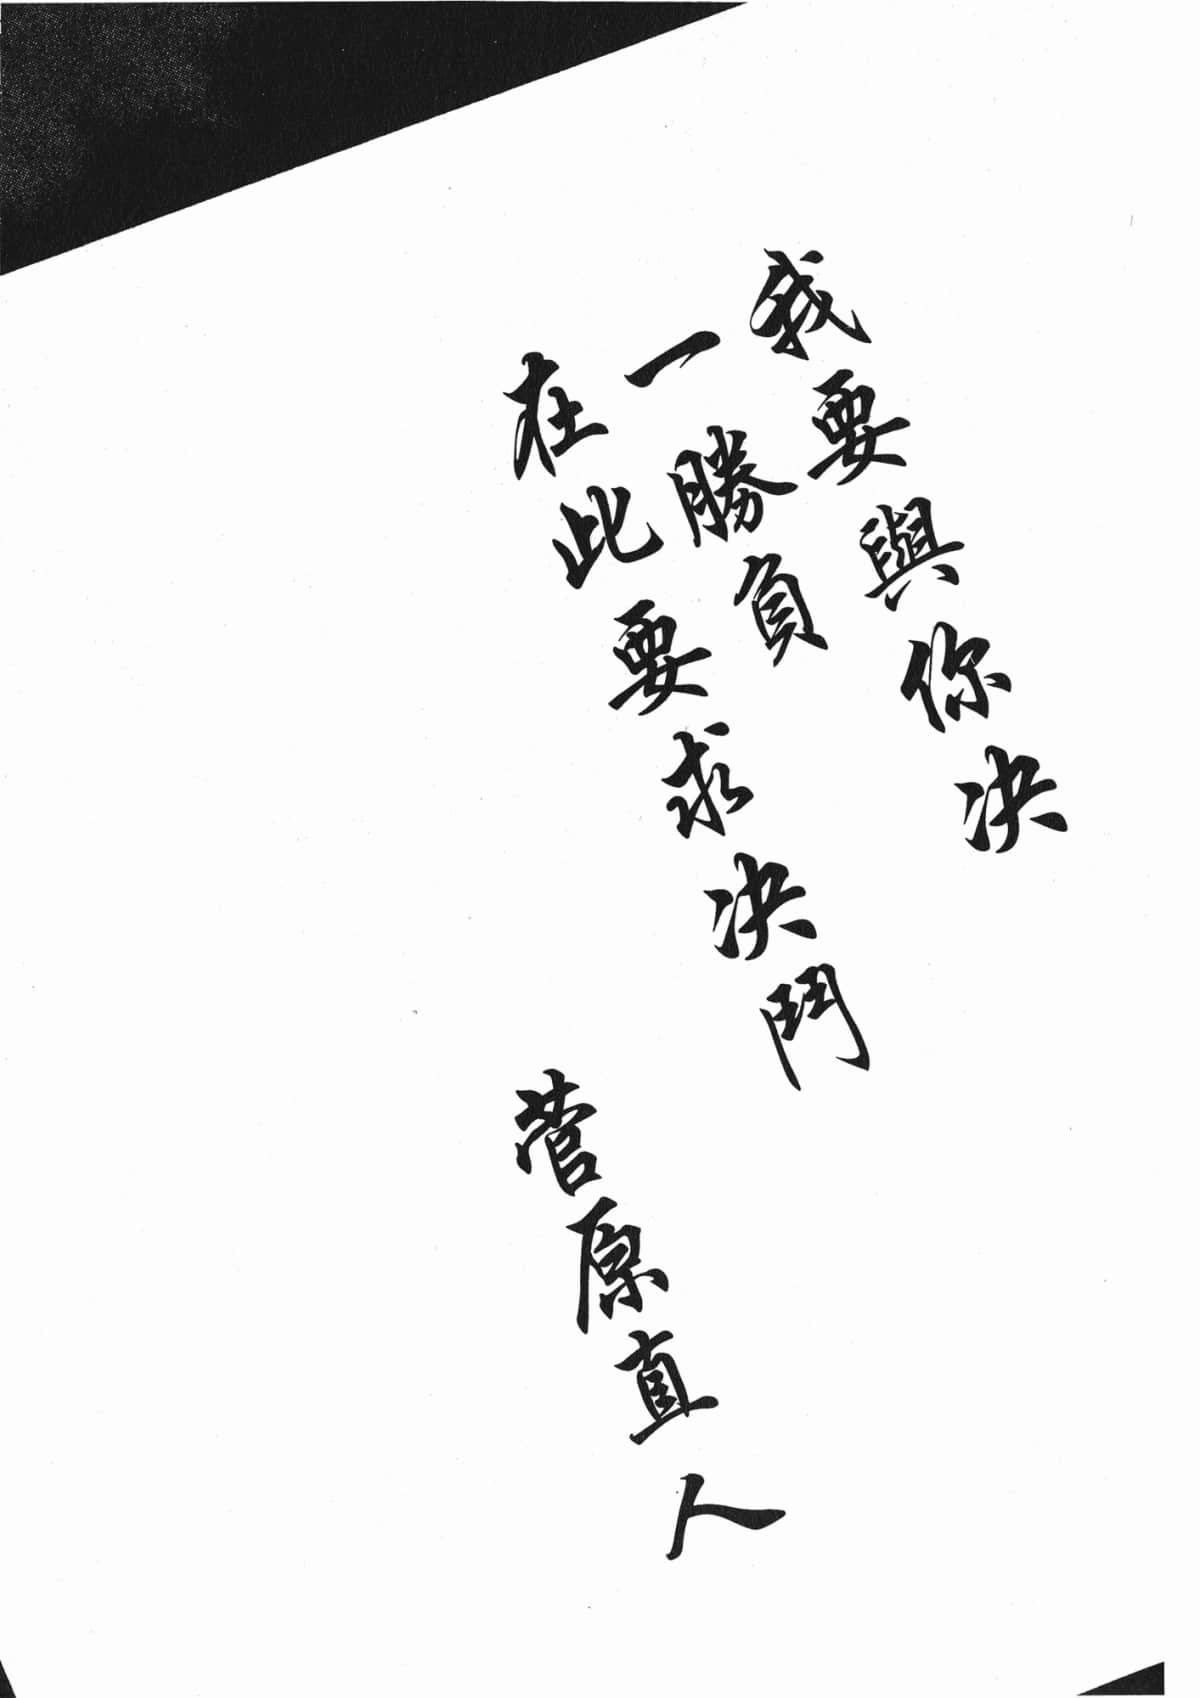 我要與你決
一勝負
在此要求決鬥
菅原直人